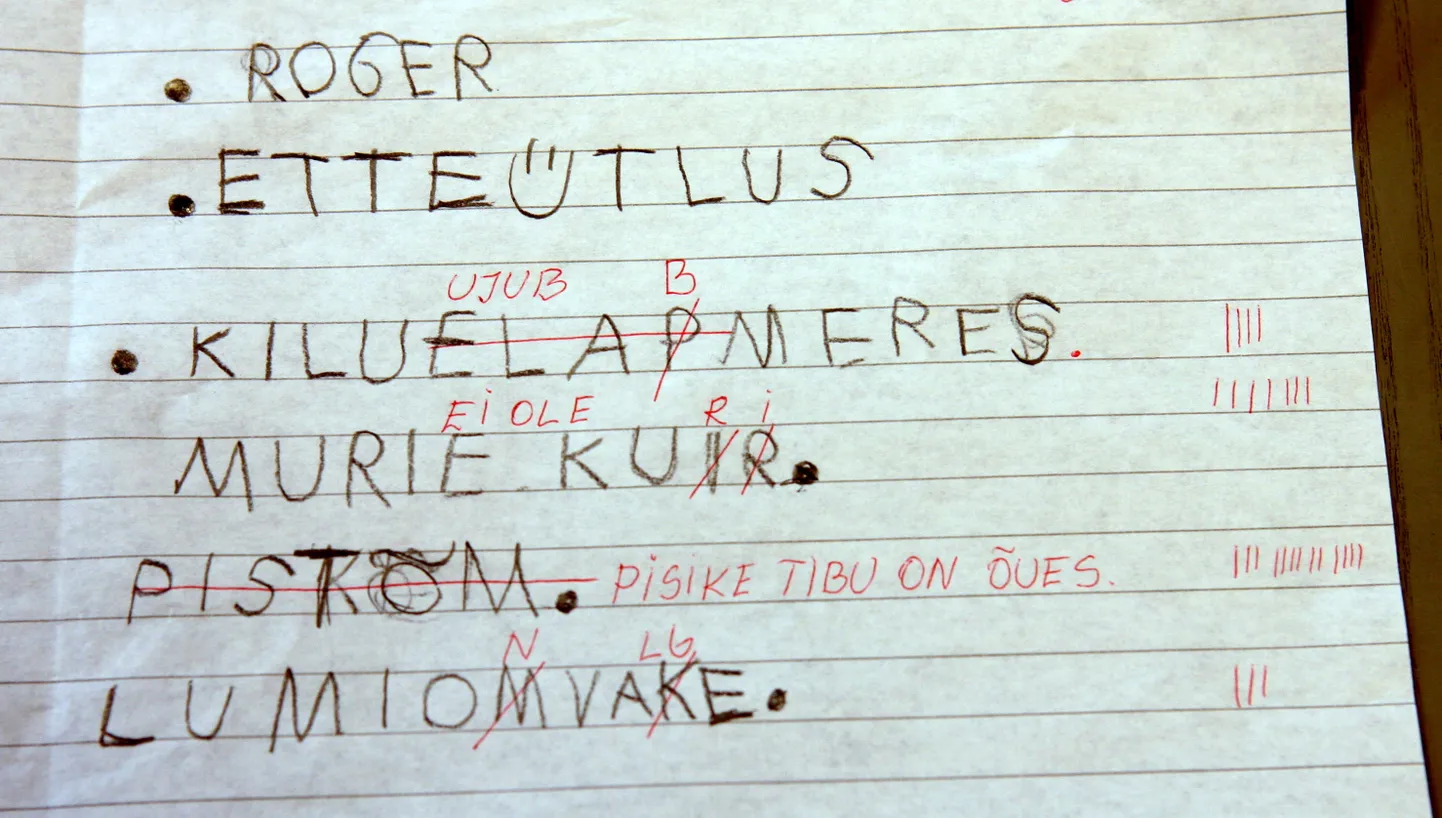 ROGER
ETTEÜTLUS
UJUB B
KILUELAPMERES.
EI OLE R i
MURIE KUIR.
PISTKÕM. PISIKE TIBU ON ÕUES.
N LG
LUMIOMVAKE.